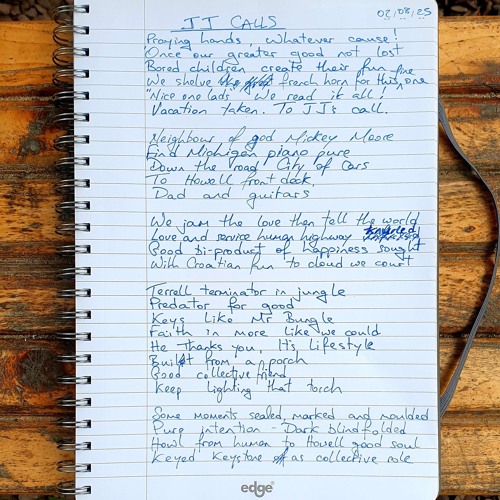 JJ CALLS
02/08/25
Praying hands, whatever cause!
Once our greater good not lost
Bored children create their fun fine
We shelve the french horn for this one
"Nice one lads". We read it all!
Vacation taken. To JJ's call.
Neighbour of god Mickey Moore
Find Michigan piano pure
Down the road City of Cars
To Howell front deck,
Dad and guitars
We jam the love then tell the world
Love and service human highway
Good bi-product of happiness sought
With Croatian fun to cloud we court
Terrell terminator in jungle
Predator for good
Keys like Mr Bungle
Faith in more like we could
He Thanks you, It's Lifestyle
Built from a porch
Good collective friend
Keep lighting that torch
Some moments sealed, marked and moulded
Pure intention - Dark blindfolded
Howl from human to Howell good soul
Keyed Keystone as collective role
edge